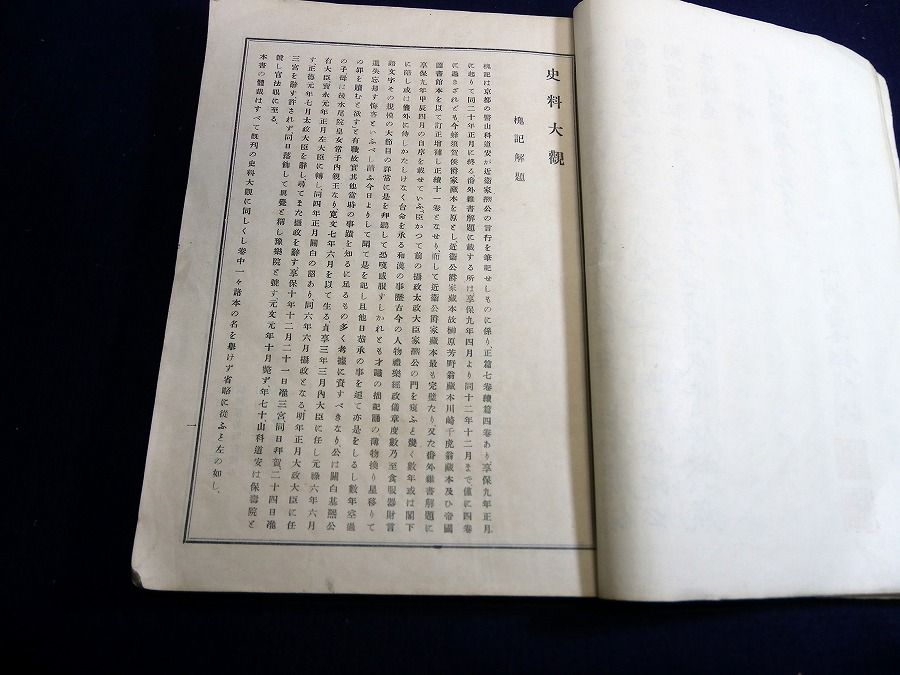 史料大觀
槐記解題
槐記は京都の醫山科道安が近衞家凞公の言行を筆記せしものに係り、正篇七卷續篇四卷あり享保九年正月
に起りて同二十年正月に終る番外雜書解題に載する所は享保九年四月より同十二年十二月まで僅に四卷
に過ぎざれども、今蜂須賀侯爵家藏本を原とし、近衞公爵家藏本故榊原芳野翁藏本川崎千虎翁藏本及ひ帝國
圖書館本を以て訂正增補し正續十一卷となせり、而して近衞公爵家藏本最も完璧たり又た番外雜書解題に
享保九年甲辰四月の自序を載せていふ、臣かつて前の攝政太政大臣家凞公の門を窺ふと幾く數年或は閣下
に陪し或は儀外に侍しかたしけなく台命を承る和漢の事歷古今の人物禮樂經政儀章度數乃至食服器財言
語文字その規模の大節目の詳審に是を拜聽して恐嘆感服すしかれとも才識の拙記誦の薄物換り星移りて
遺失忘却す悔吝といふべし請ふ今日よりして聞て是を記し且他日恭承の事を追て亦是をしるし數年空過
の罪を贖むと欲すと有職故官其他當時の事蹟を知るに足るもの多く考據に資すべきなり、公は關白基凞公
の子母は後水尾院皇女常子內親王なり寬文七年六月を以て生る貞享三年三月內大臣に任し元祿六年六月
右大臣寳永元年正月左大臣に轉し同四年正月關白の詔あり同六年六月攝政となる明年正月太政大臣に任
す正德元年七月太政大臣を辭し尋てまた攝政を辭す、享保十年十二月二十一日准三宮同日拜賀二十四日准
三宮を辭す許されず同日落飾して眞覺と稱し豫樂院と號す、元文元年十月薨ず、年七十山科道安は保壽院と
號し官法眼に至る。
本書の體裁はすべて旣刊の史料大觀に同しくし卷中一々諸本の名を擧けず省略に從ふと左の如し、
一